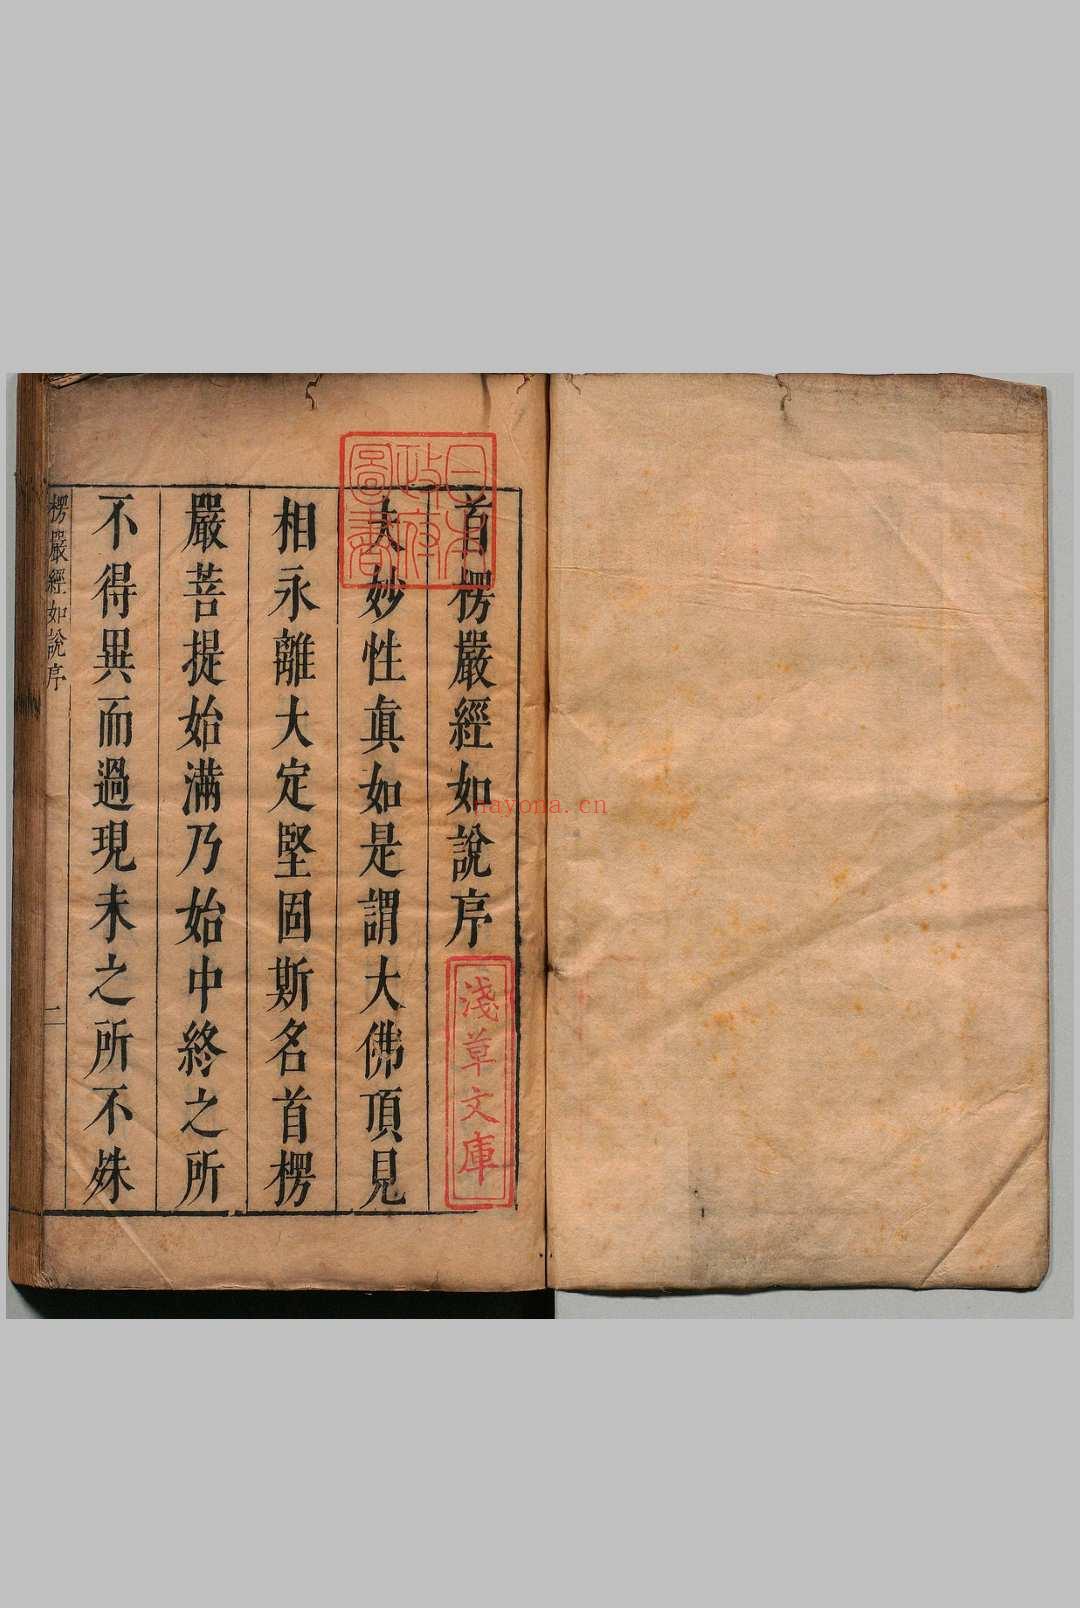 首楞嚴經如說序
夫妙性眞如是謂大佛頂見
相永離大定堅固斯名首楞
嚴菩提始滿乃始中終之所
不得異而過現未之所不姝
楞嚴經如說序
一
日本
政府
圖書
淺草文庫
nayona.cn